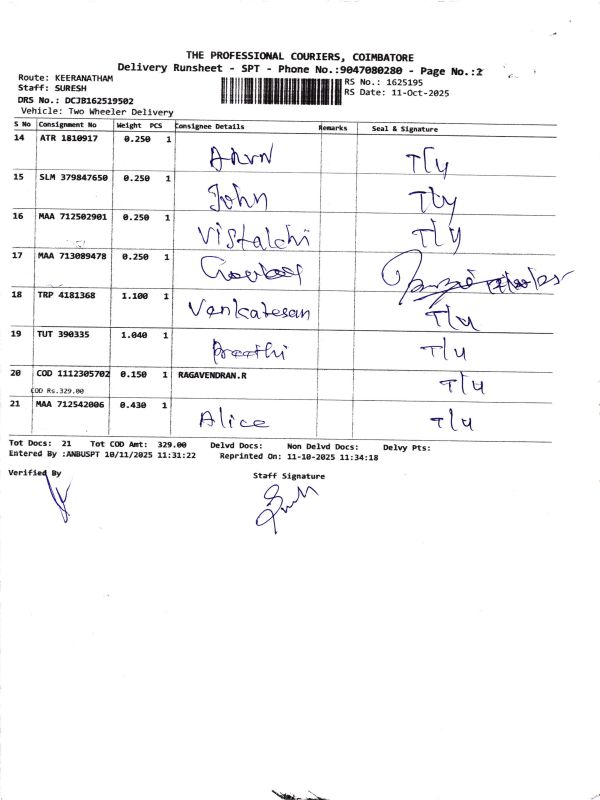 THE PROFESSIONAL COURIERS, COIMBATORE
Delivery Runsheet - SPT - Phone No.:9047080280 - Page No.:2
Route: KEERANATHAM
Staff: SURESH
RS No.: 1625195
DRS No.: DCJB162519502
RS Date: 11-Oct-2025
Vehicle: Two Wheeler Delivery
S No Consignment No Weight PCS Consignee Details Remarks Seal & Signature
14 ATR 1810917 0.250 1 Arun T/y
15 SLM 379847650 0.250 1 John T/y
16 MAA 712502901 0.250 1 Vistalchi T/y
17 MAA 713089478 0.250 1
18 TRP 4181368 1.100 1 Venkatesan T/y
19 TUT 390335 1.040 1 Preethi T/y
20 COD 1112305702 0.150 1 RAGAVENDRAN.R T/y
COD Rs.329.00
21 MAA 712542006 0.430 1 Alice T/y
Tot Docs: 21 Tot COD Amt: 329.00 Delvd Docs: Non Delvd Docs: Delvy Pts:
Entered By :ANBUSPT 10/11/2025 11:31:22 Reprinted On: 11-10-2025 11:34:18
Verified By
Staff Signature